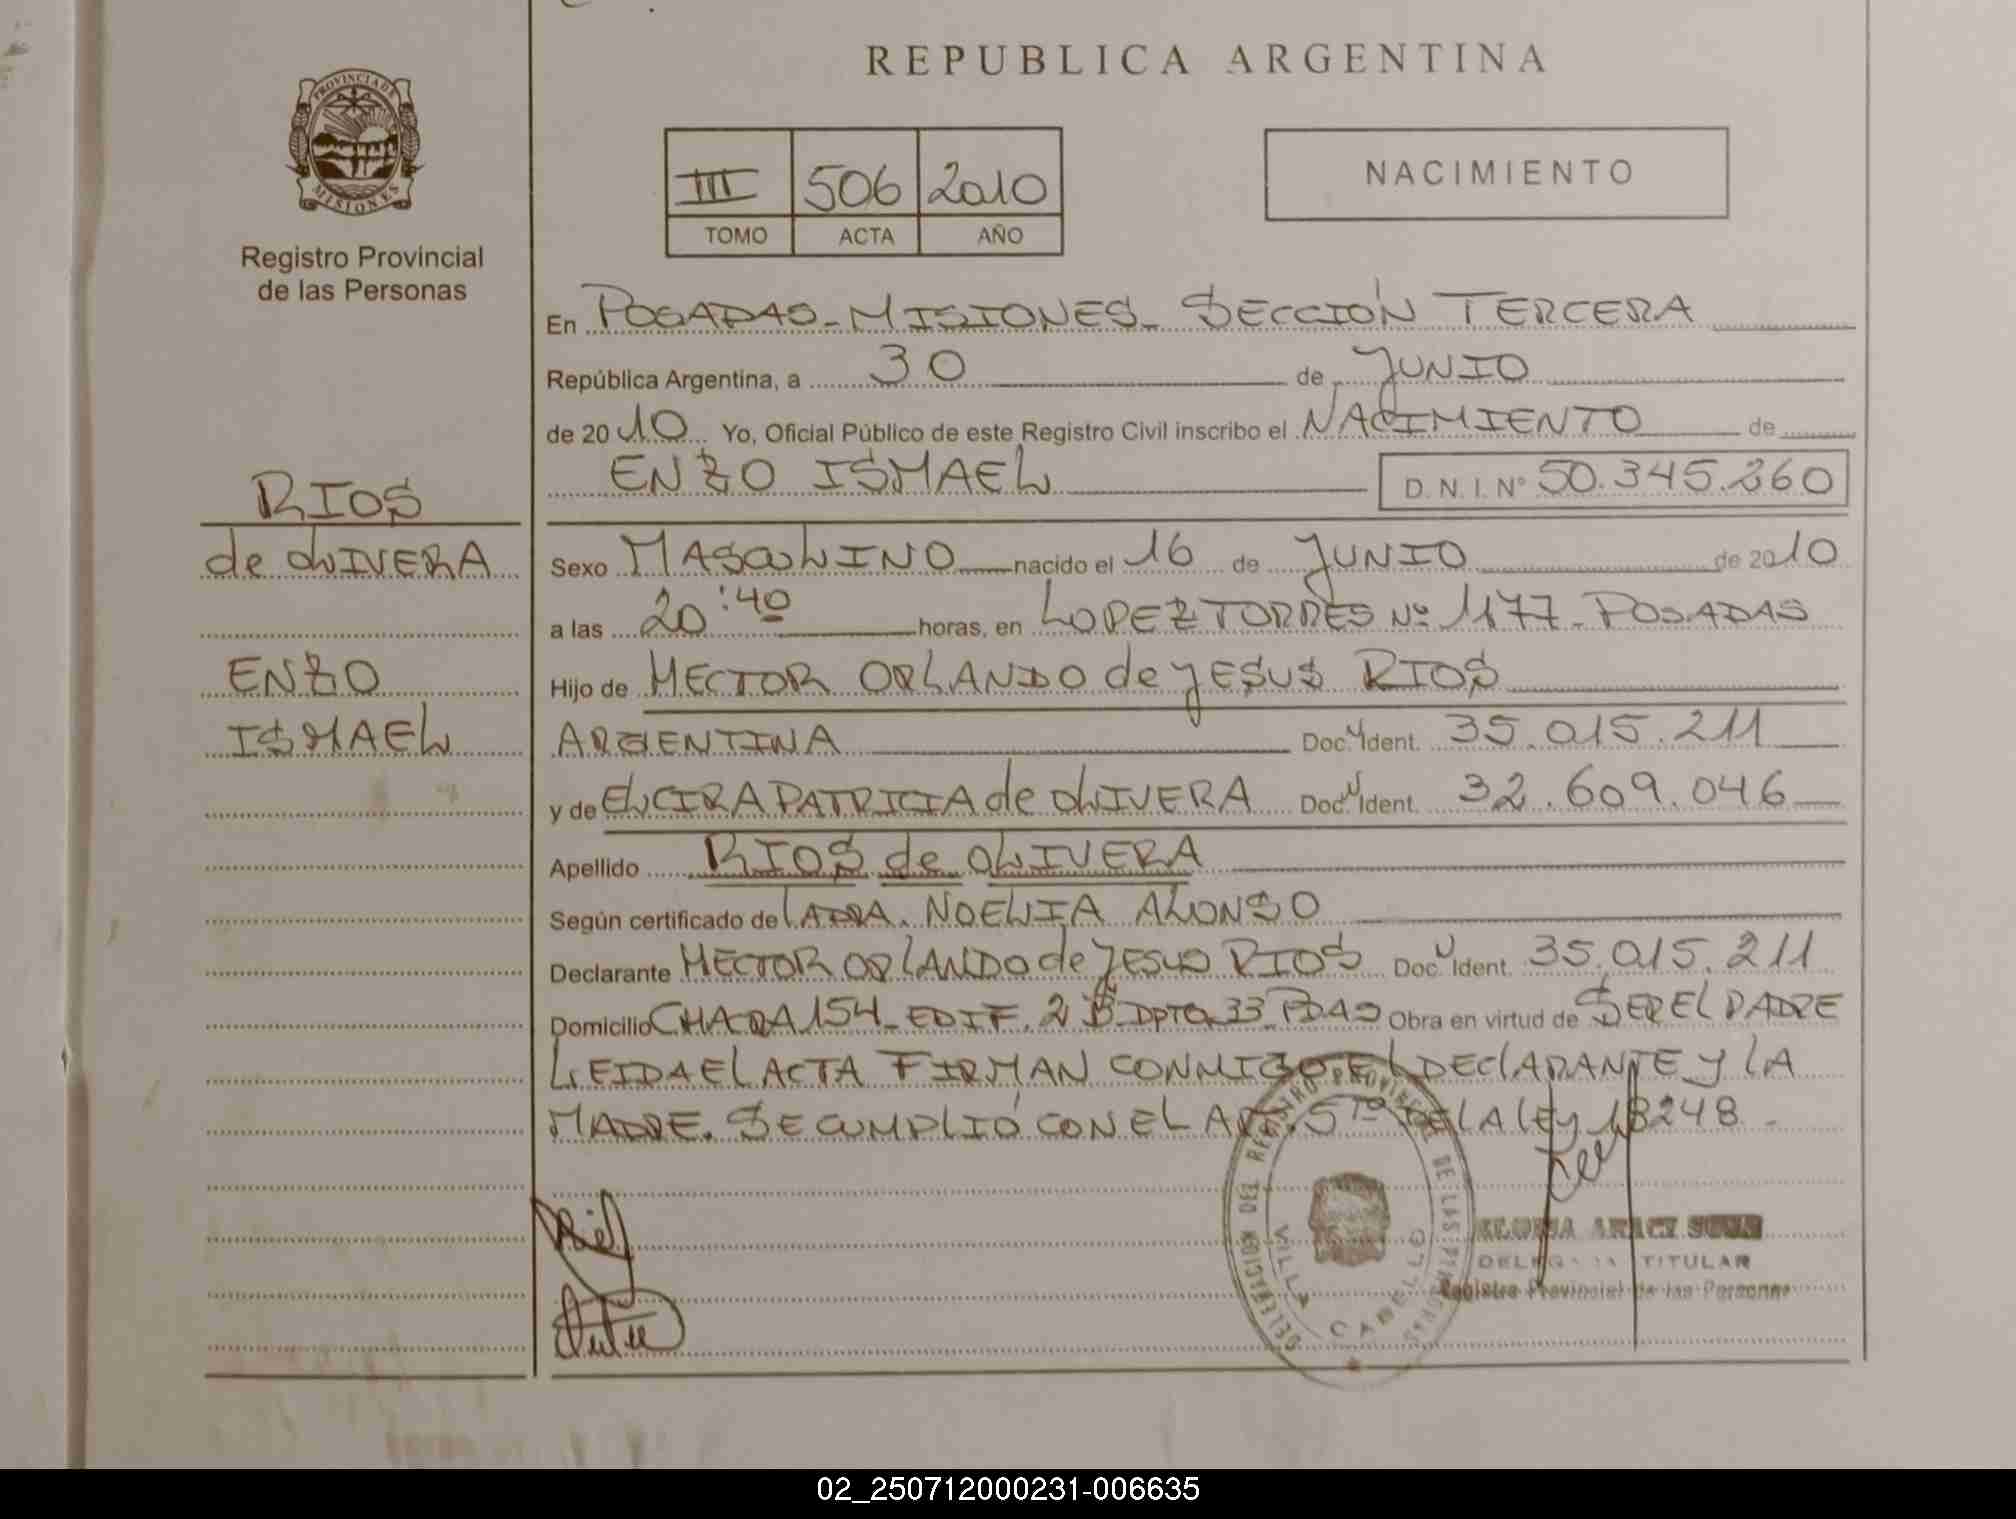 REPUBLICA ARGENTINA
PROVINCIA DE
MISIONES
Registro Provincial
de las Personas
III 506 2010
TOMO ACTA AÑO
NACIMIENTO
RIOS
de OLIVERA
ENZO
ISMAEL
En POSADAS-MISIONES- SECCIÓN TERCERA
República Argentina, a 30 de JUNIO
de 2010 Yo, Oficial Público de este Registro Civil inscribo el NACIMIENTO de
ENZO ISMAEL D.N.I. N° 50.345.260
Sexo MASCULINO nacido el 16 de JUNIO de 2010
a las 20:40 horas, en LOPEZ TORRES Nº 1177- POSADAS
Hijo de HECTOR ORLANDO de JESUS RIOS
ARGENTINA Doc. Ident. 35.015.211
y de ELCIRA PATRICIA de OLIVERA Doc. Ident. 32.609.046
Apellido RIOS de OLIVERA
Según certificado de LA DRA. NOELIA ALONSO
Declarante HECTOR ORLANDO de JESUS RIOS Doc. Ident. 35.015.211
Domicilio CHARA 154- EDIF. 2 B- DPTO. 33- PDAS Obra en virtud de SER EL PADRE
LEIDA EL ACTA FIRMAN CONMIGO EL DECLARANTE Y LA
MADRE. SE CUMPLIÓ CON EL ART. 5TO DE LA LEY 18248.-
DELEGACION DEL REGISTRO PROVINCIAL DE LAS PERSONAS
VILLA CABELLO
TITULAR
Registro Provincial de las Personas
02_250712000231-006635